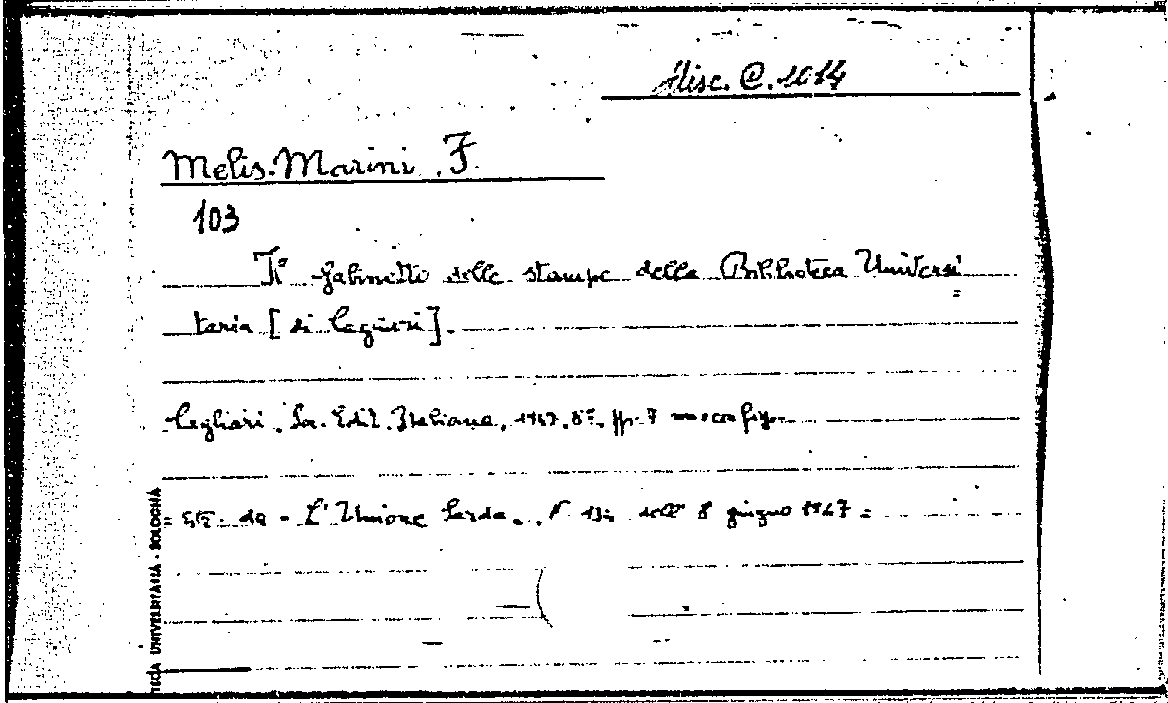 Misc. C. 1014
Melis-Marini, F.
103
Il gabinetto delle stampe della Biblioteca Universi
=
taria [di Cagliari].
Cagliari. Soc. Edit. Italiana, 1947. 8°. pp. 7 con
= Estr. da - L'Unione Sarda. N° dell' 8 giugno 1947 =
TECA UNIVERSITARIA - BOLOGNA